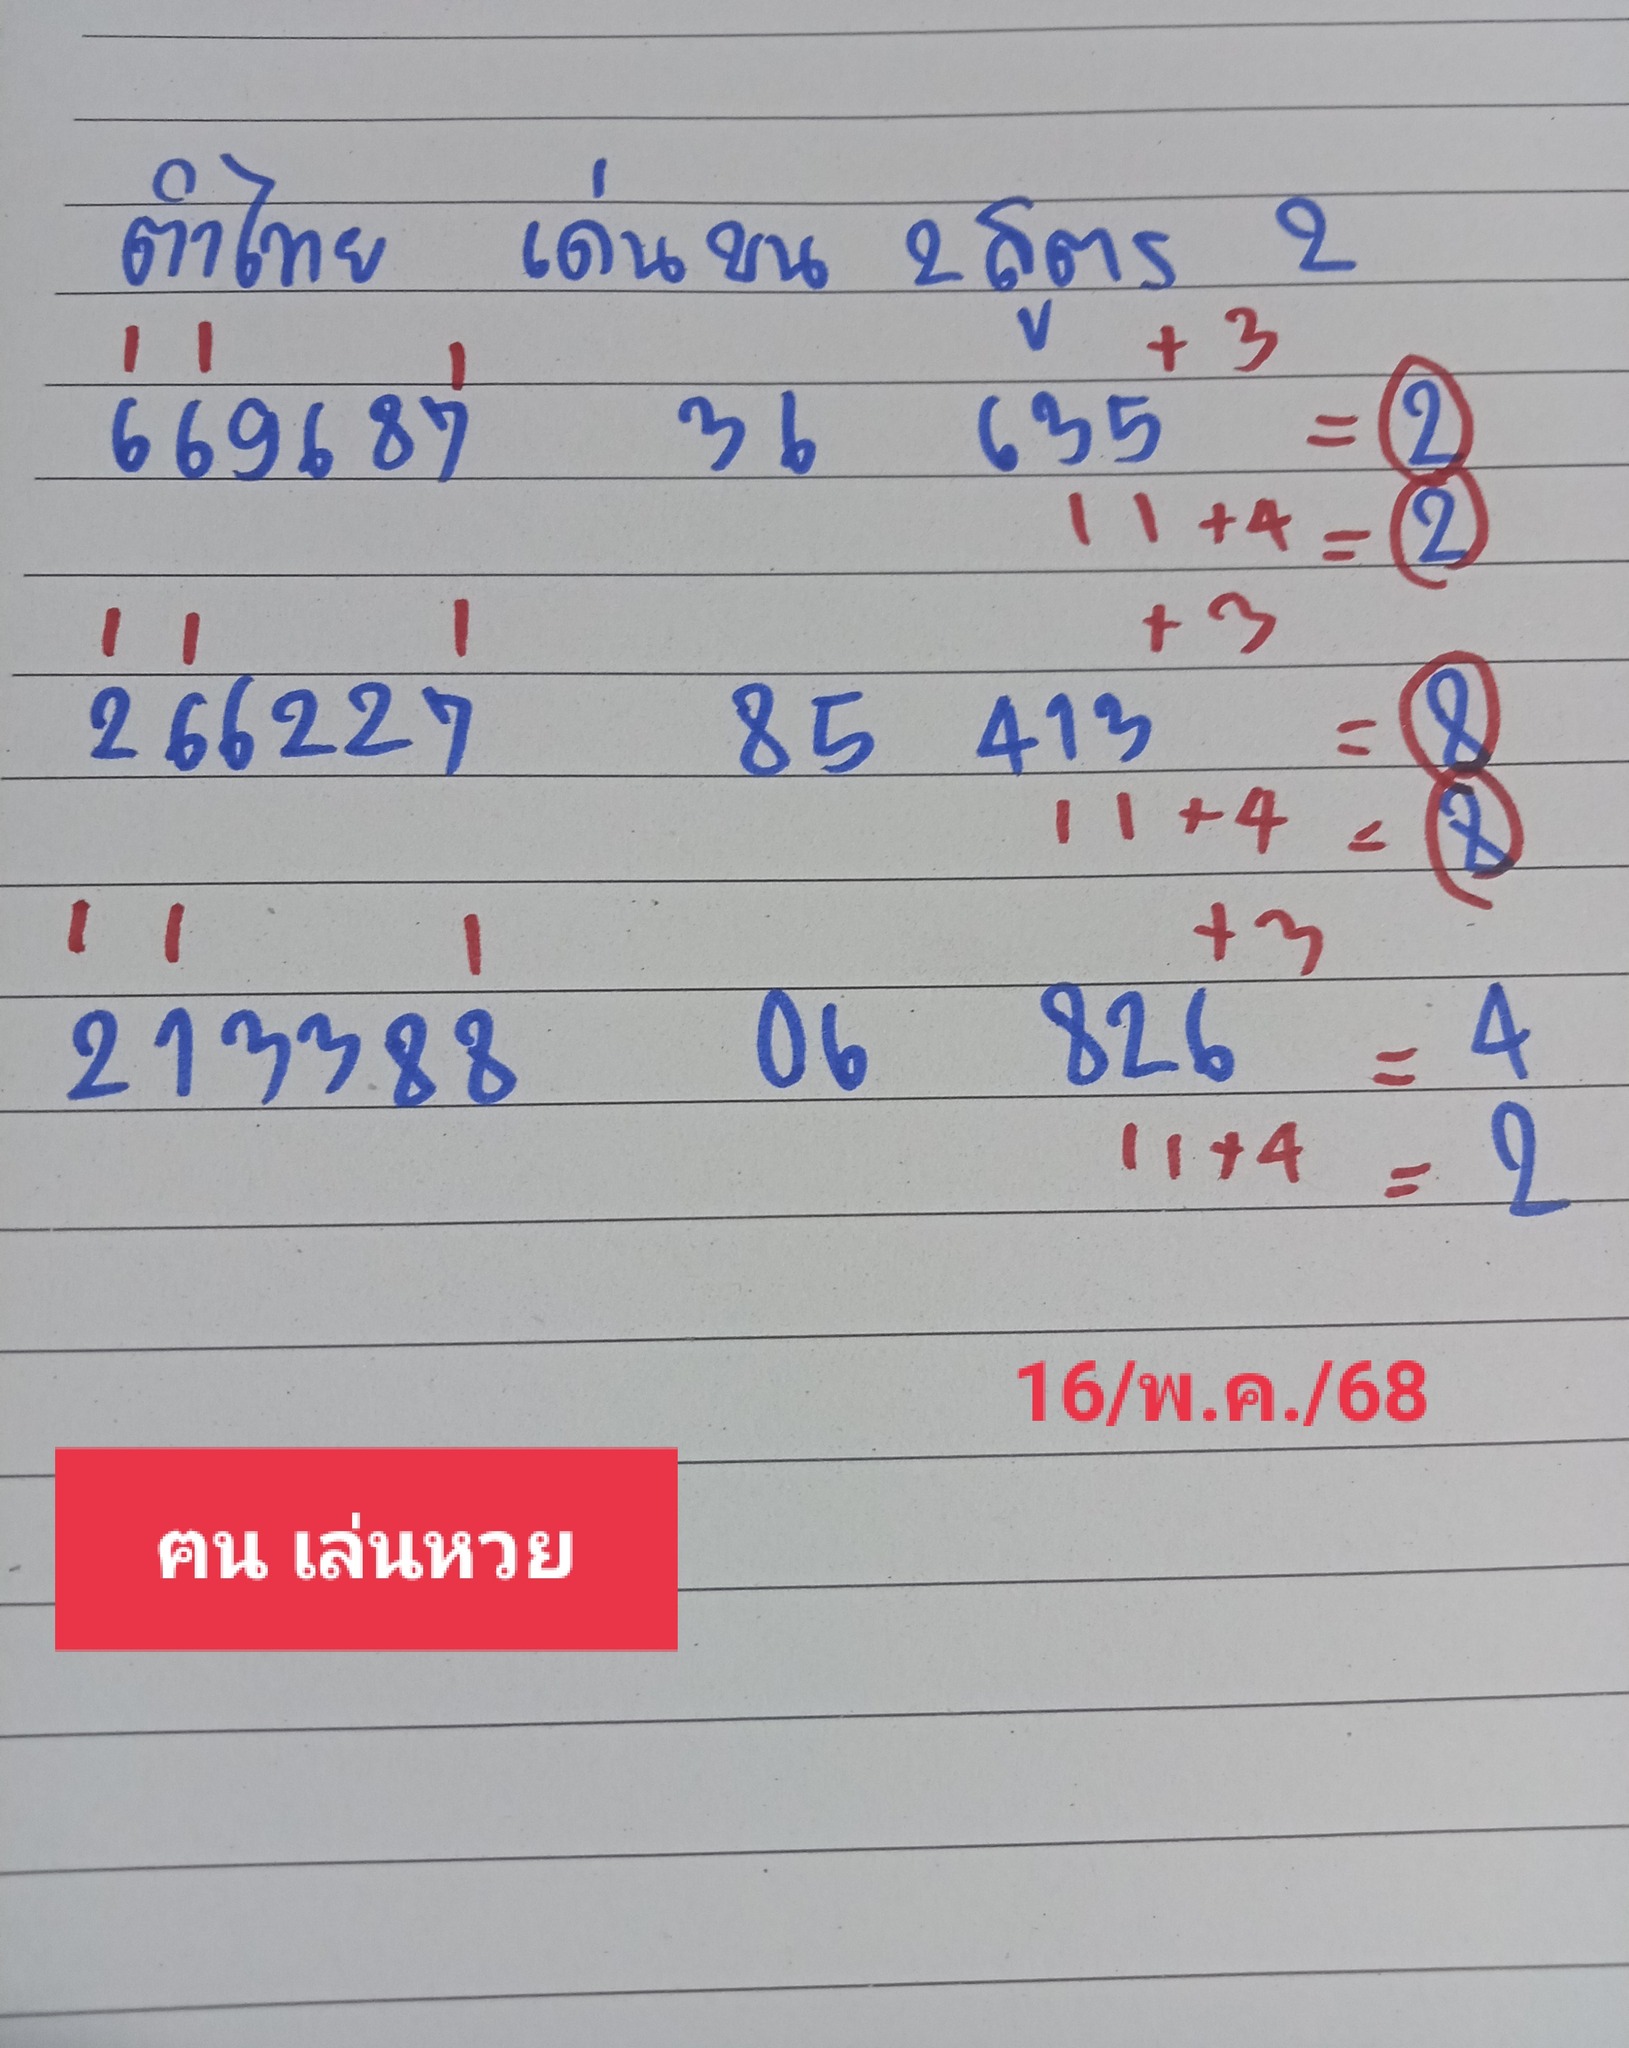 ตำไทย เด่นชน 2 สูตร 2
1 1 1 + 3
669687 36 635 = 2
1 1 + 4 = 2
1 1 1 + 3
266227 85 413 = 8
1 1 + 4 = 8
1 1 1 + 3
213388 06 826 = 4
1 1 + 4 = 2
16/พ.ค./68
ฅน เล่นหวย